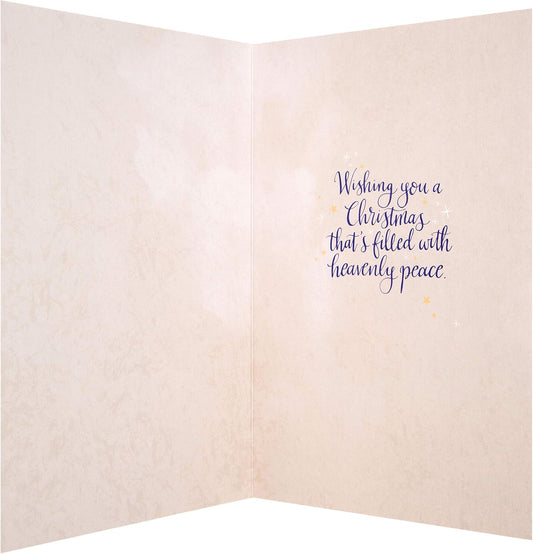 Wishing you a
Christmas
that's filled with
heavenly peace.